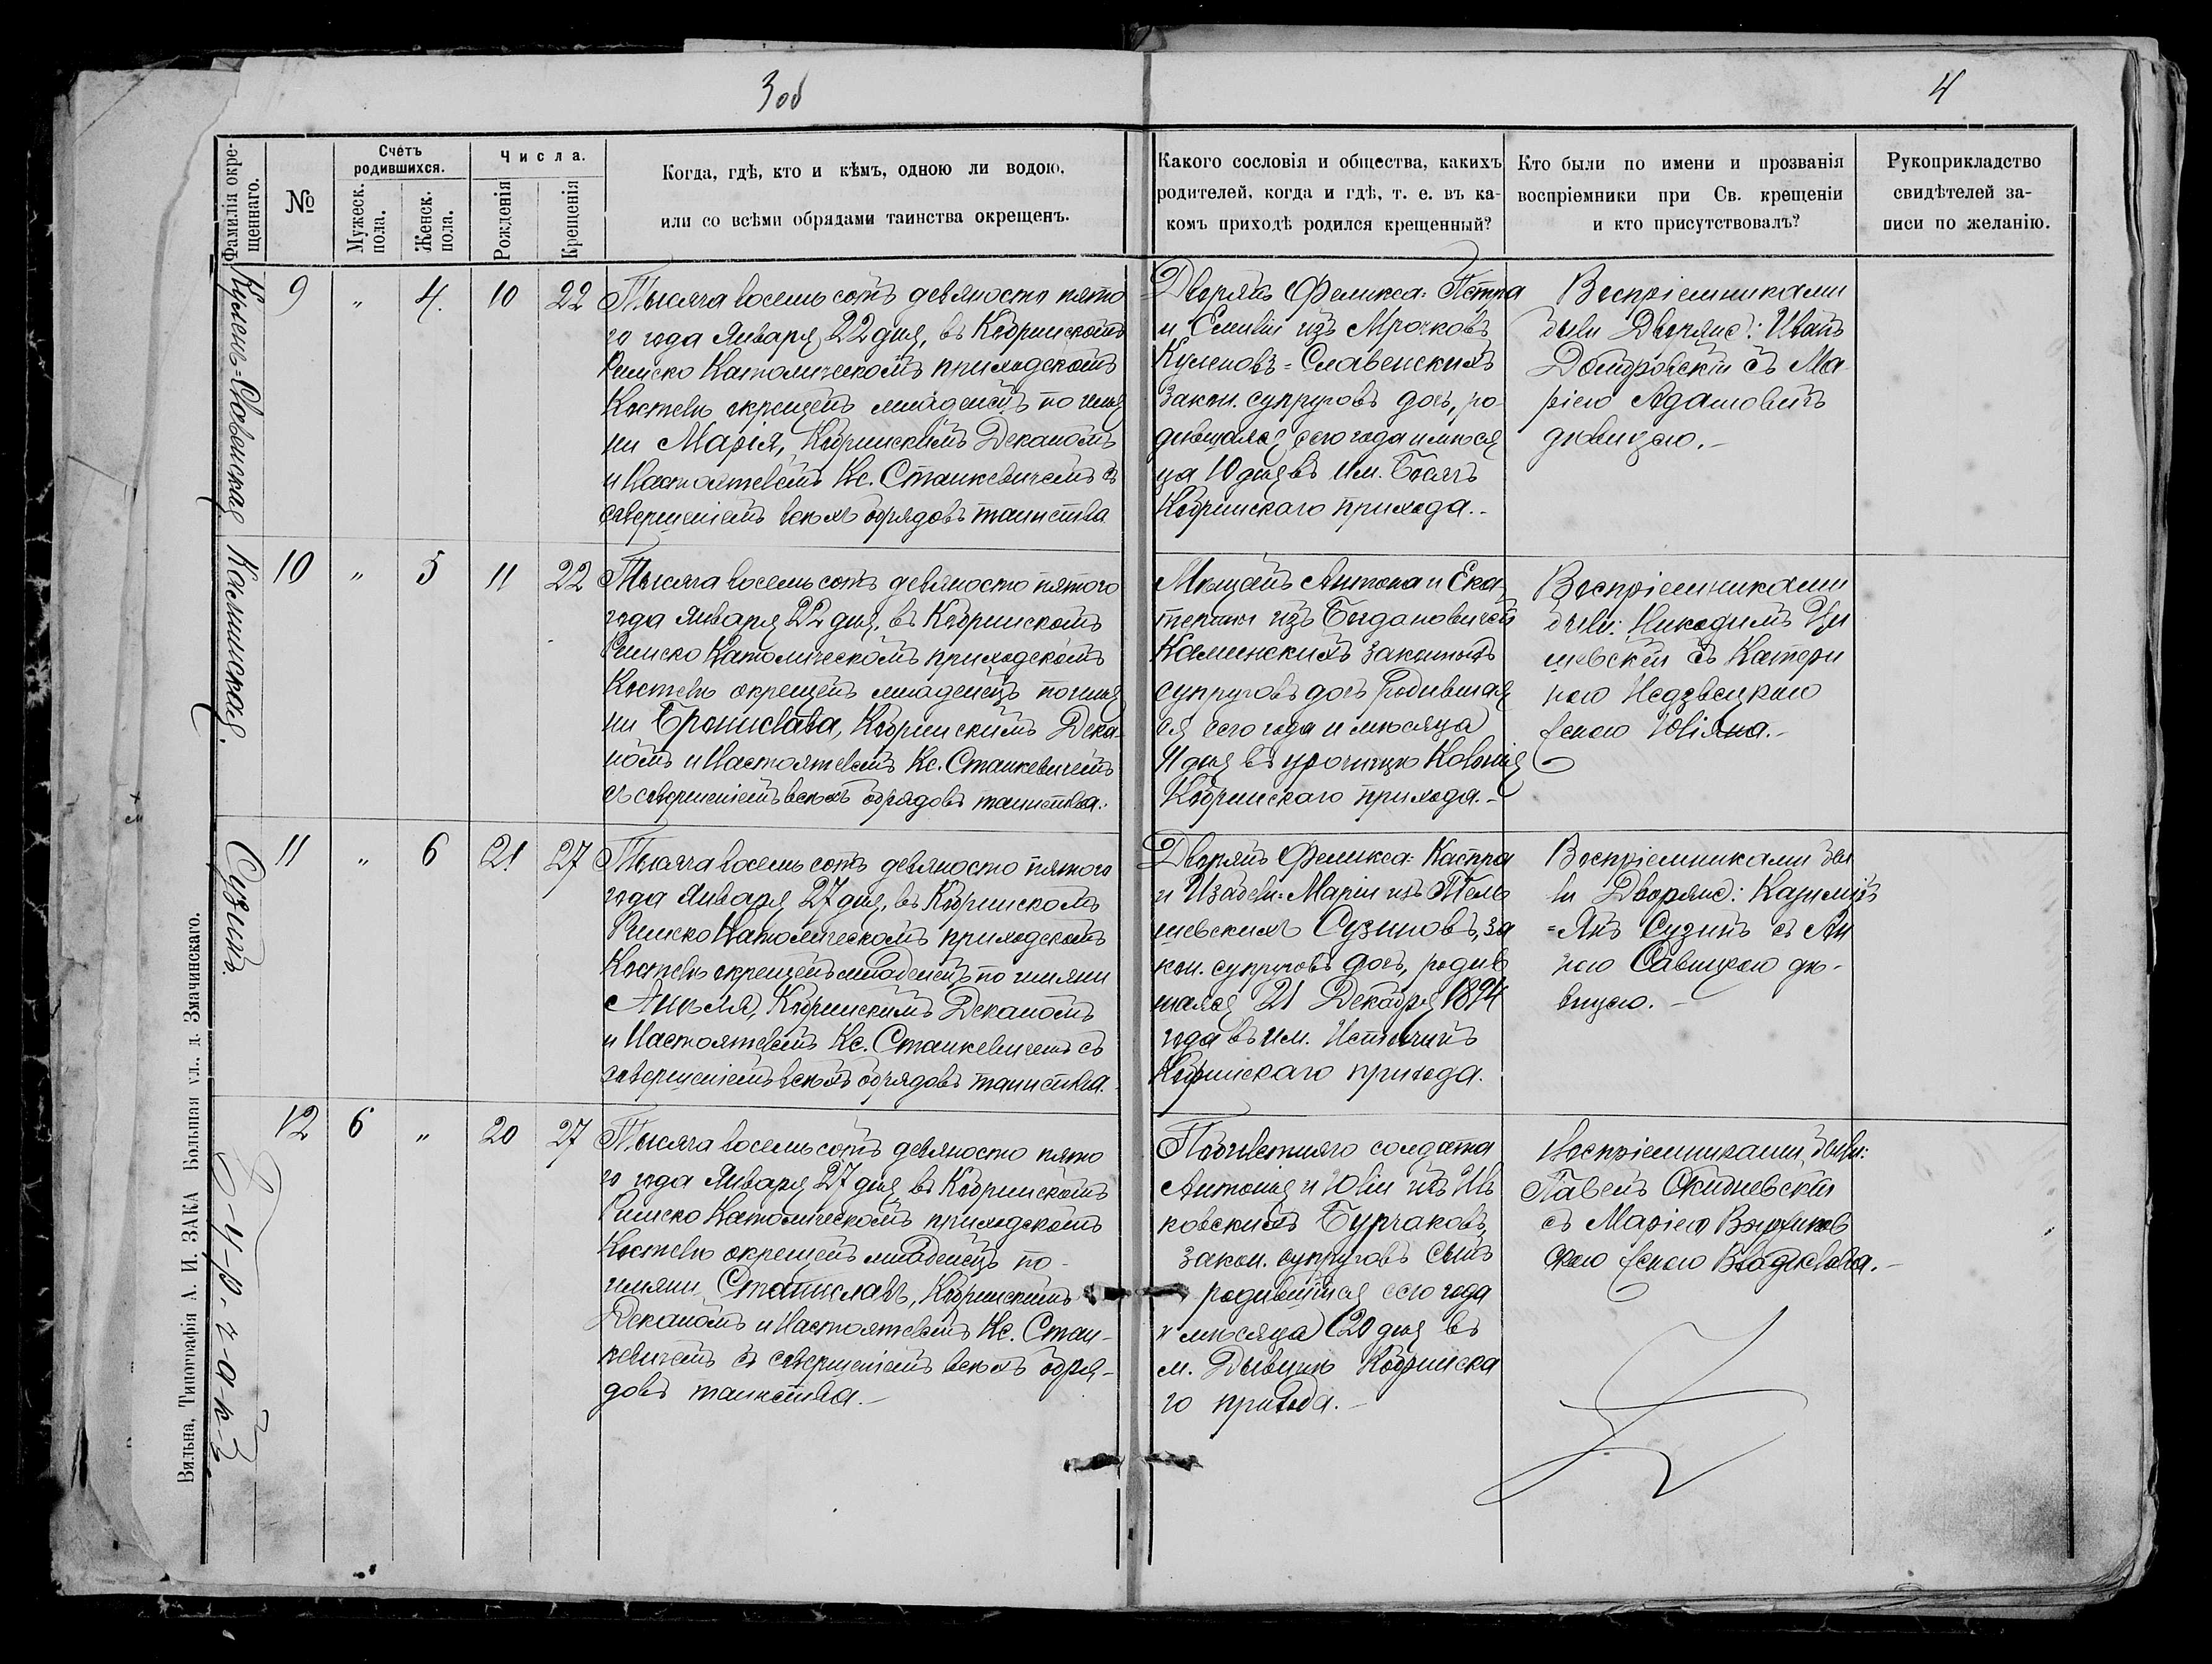 3 об
4
Фамилія окре-
щеннаго.
№
Счетъ
родившихся.
Мужеск.
пола.
Женск.
пола.
Числа.
Рожденія
Крещенія
Когда, гдѣ, кто и кѣмъ, одною ли водою,
или со всѣми обрядами таинства окрещенъ.
Какого сословія и общества, какихъ
родителей, когда и гдѣ, т. е. въ ка-
комъ приходѣ родился крещенный?
Кто были по имени и прозванія
воспріемники при Св. крещеніи
и кто присутствовалъ?
Рукоприкладство
свидѣтелей за-
писи по желанію.
9
"
4.
10
22
Тысяча восемь сотъ девяносто пято
го года Января 22 дня, въ Кобринскомъ
Римско Католическомъ приходскомъ
Костелѣ окрещенъ младенецъ по име
ни Марія, Кобринскимъ Деканомъ
и Настоятелемъ Кс. Станкевичемъ съ
совершеніемъ всѣхъ обрядовъ таинства
Дворянъ Феликса-Петра
и Емиліи изъ Мрочковъ
Куленовъ-Славенскихъ
закон. супруговъ дочь, ро
дившаяся сего года и мѣся
ца 10 дня въ им.
Кобринскаго прихода.-
Воспріемниками
были Дворяне: Иванъ
Домбровскій съ Ма
ріею Адамовичъ
дѣвицею.-
Каминская.
10
"
5
11
22
Тысяча восемь сотъ девяносто пятого
года Января 22 дня, въ Кобринскомъ
Римско Католическомъ приходскомъ
Костелѣ окрещенъ младенецъ по име
ни Брониславa, Кобринскимъ Дека
номъ и Настоятелемъ Кс. Станкевичемъ
съ совершеніемъ всѣхъ обрядовъ таинства.
Мѣщанъ Антона и Ека
терины изъ Богдановичей
Каминскихъ законныхъ
супруговъ дочь родившая
ся сего года и мѣсяца
11 дня въ урочищѣ Колонія
Кобринскаго прихода.-
Воспріемниками
были: Никодимъ
съ Катери
ною Недзвецкою
женою Юліяна.-
Сузинъ.
11
"
6
21
27
Тысяча восемь сотъ девяносто пятого
года Января 27 дня, въ Кобринскомъ
Римско Католическомъ приходскомъ
Костелѣ окрещенъ младенецъ по имени
Анеля, Кобринскимъ Деканомъ
и Настоятелемъ Кс. Станкевичемъ съ
совершеніемъ всѣхъ обрядовъ таинства.
Дворянъ Феликса-Каспра
и Изабели-Маріи изъ Тель
шевскихъ Сузиновъ, за
кон. супруговъ дочь, родив
шаяся 21 Декабря 1894
года въ им.
Кобринскаго прихода.
Воспріемниками бы
ли Дворяне: Казиміръ
=Янъ Сузинъ съ Ан
ною Савицкою дѣ-
вицею.-
12
6
"
20
27
Тысяча восемь сотъ девяносто пято
го года Января 27 дня въ Кобринскомъ
Римско Католическомъ приходскомъ
Костелѣ окрещенъ младенецъ по
имени Станиславъ, Кобринскимъ
Деканомъ и Настоятелемъ Кс. Стан-
кевичемъ съ совершеніемъ всѣхъ обря-
довъ таинства.-
солдата
Антонія и Юліи изъ
ковскихъ Бурчаковъ
закон. супруговъ сынъ
родившійся сего года
и мѣсяца 20 дня въ
м. Дывинѣ Кобринска
го прихода.-
Воспріемниками были:
Павелъ
съ Маріею
женою Владислава.-
Б-у-р-ч-а-к-ъ.
Вильна, Типографія А. И. ЗАКА Большая ул., д. Змачинскаго.